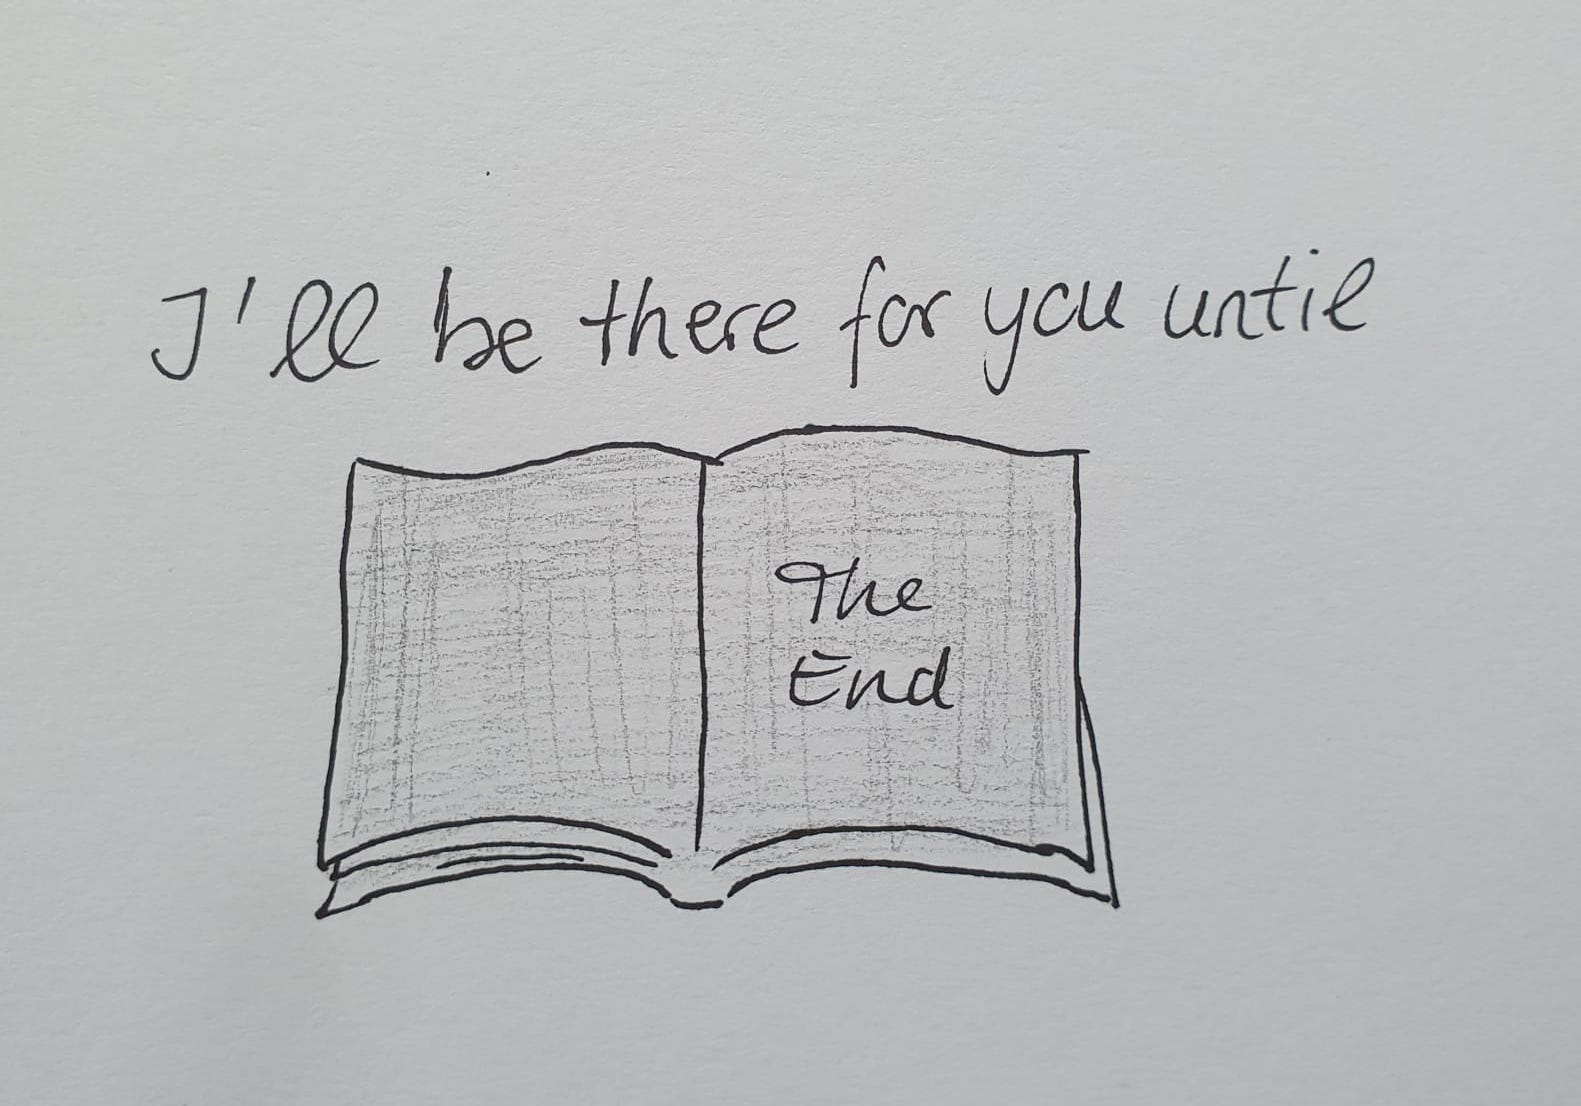 I'll be there for you until
The
End